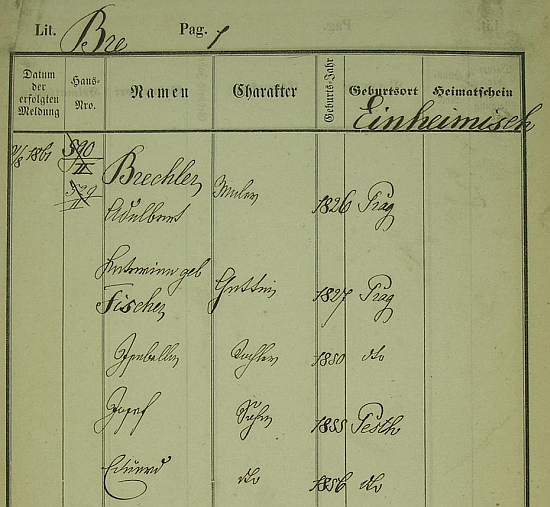 Lit. Bre Pag. 1
Datum der erfolgten Meldung
Haus-Nro.
Namen
Charakter
Geburts-Jahr
Geburtsort
Heimatschein
Einheimisch
1861 590/II Brechler Maler 1826 Prag
Adalbert
Antonine geb
Fischer Gattin 1827 Prag
Isabella Tochter 1850 dto
Josef Sohn 1855 Pesth
Eduard dto 1856 dto